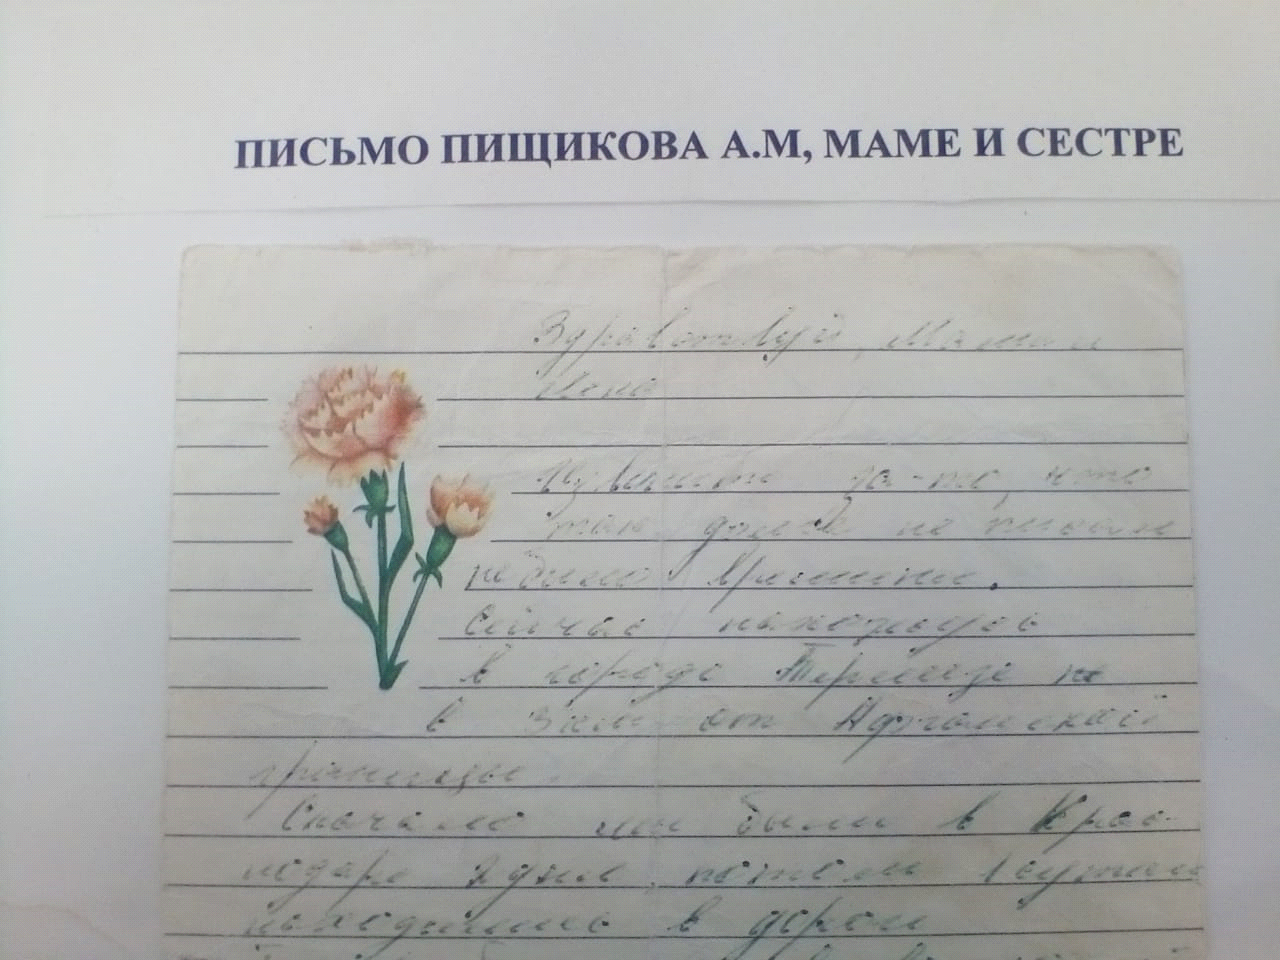 ПИСЬМО ПИЩИКОВА А.М, МАМЕ И СЕСТРЕ
Здравствуй, Мама и
Лена
Извините за-то, что
так долго не писал
не было времени.
Сейчас нахожусь
в городе Термезе
в от Афганской
границы.
Сначала мы были в Крас-
нодаре 2 дня, потом 1 сутки
находились в